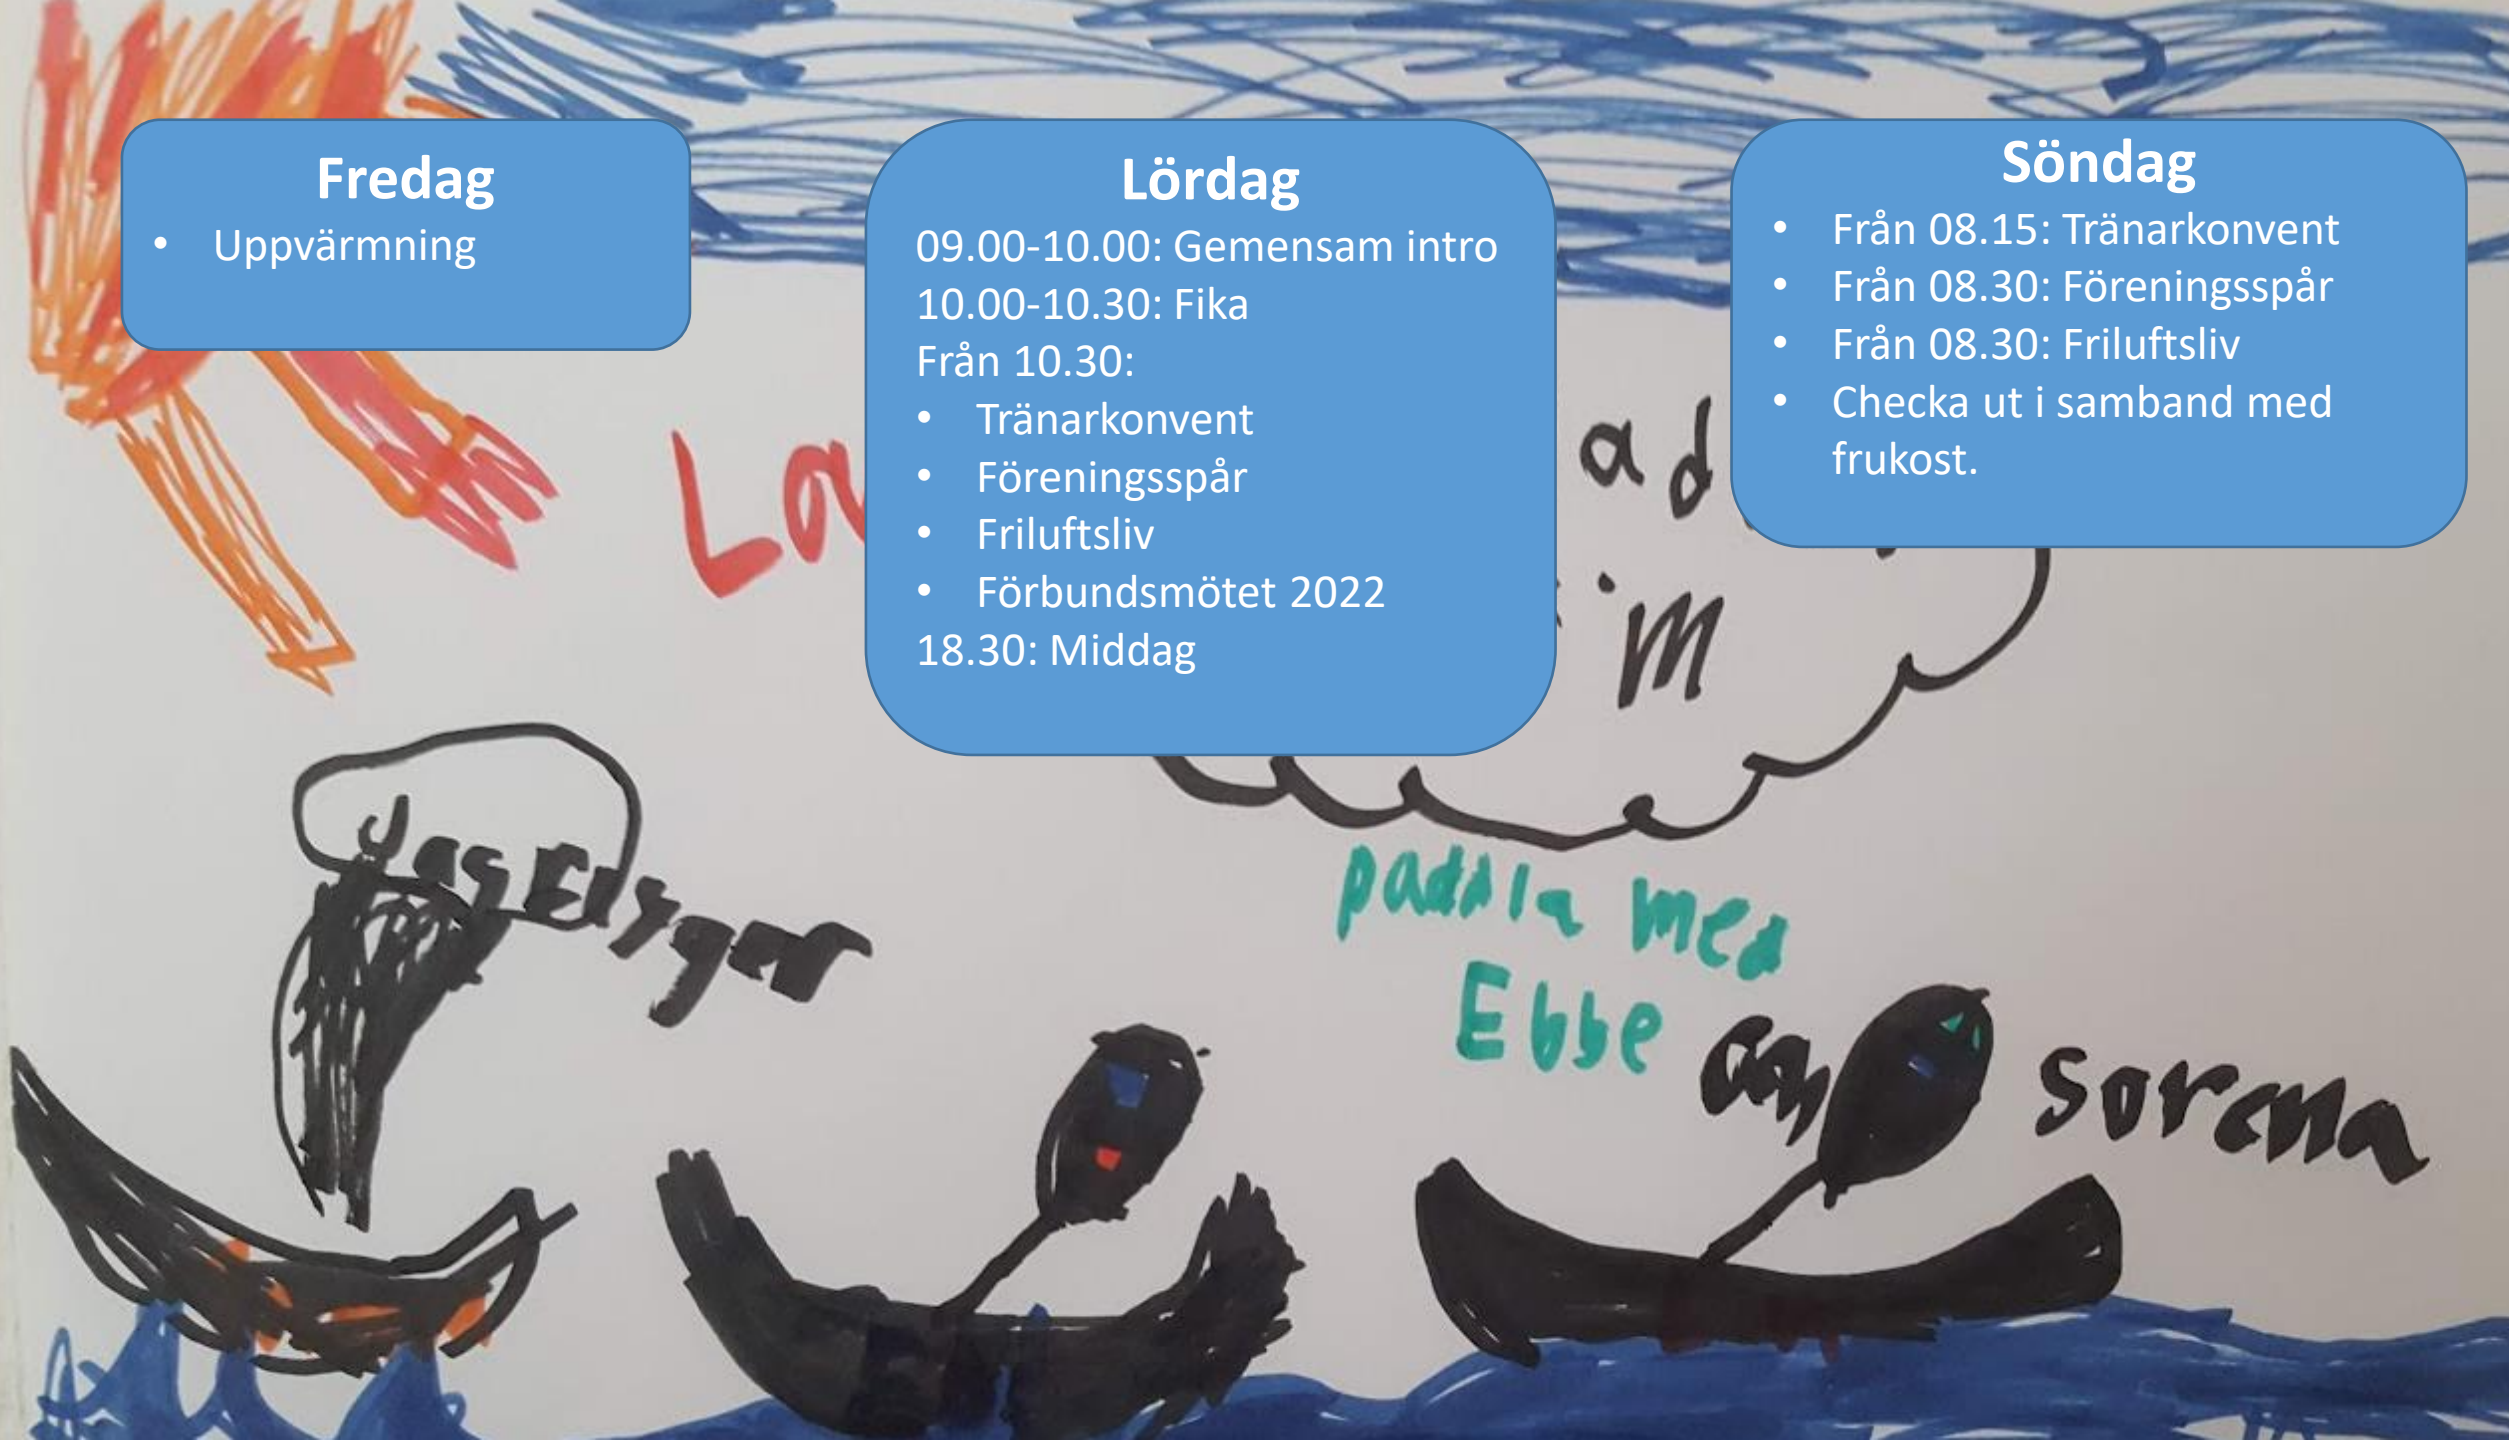 Fredag
• Uppvärmning
Lördag
09.00-10.00: Gemensam intro
10.00-10.30: Fika
Från 10.30:
• Tränarkonvent
• Föreningsspår
• Friluftsliv
• Förbundsmötet 2022
18.30: Middag
Söndag
• Från 08.15: Tränarkonvent
• Från 08.30: Föreningsspår
• Från 08.30: Friluftsliv
• Checka ut i samband med
frukost.
paddla med
Ebbe